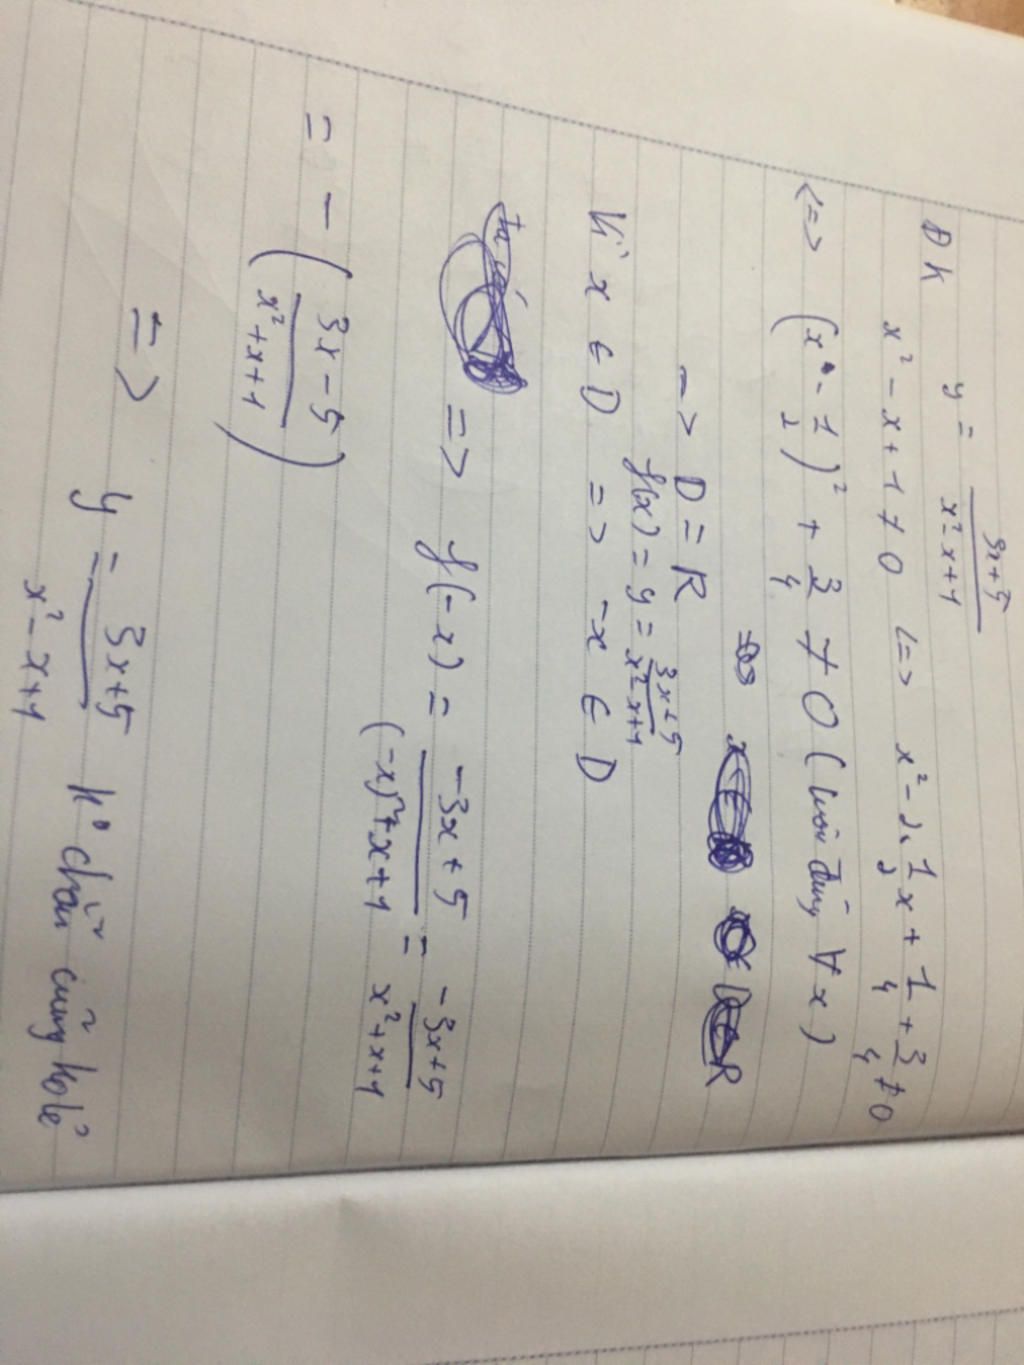 y = 3x+5 / x²-x+1
ĐK x² - x + 1 ≠ 0 <=> x² - 2. 1/2 x + 1/4 + 3/4 ≠ 0
<=> (x - 1/2)² + 3/4 ≠ 0 (luôn đúng ∀ x)
-> D = R
f(x) = y = 3x+5 / x²-x+1
Vì x ∈ D => -x ∈ D
=> f(-x) = -3x + 5 / (-x)²+x+1 = -3x+5 / x²+x+1
= - (3x - 5 / x²+x+1)
=> y = 3x+5 / x²-x+1 k° chẵn cũng ko lẻ